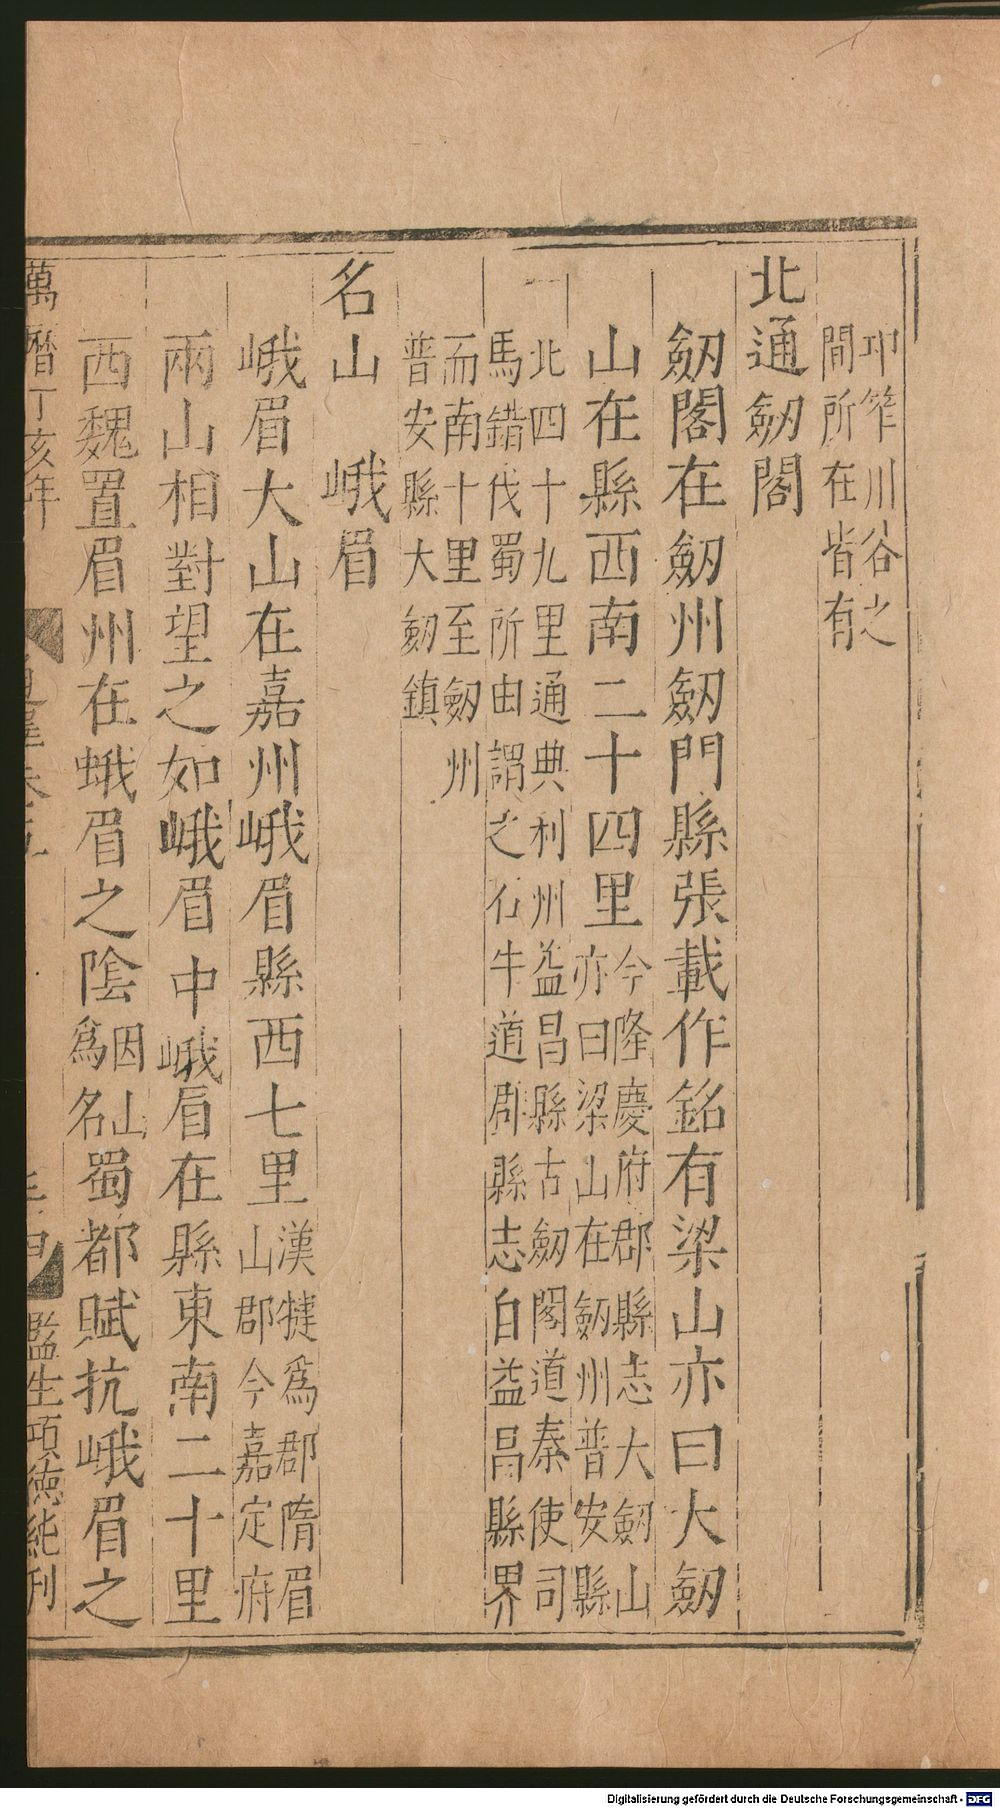 卭筰川谷之
間所在皆有
北通劒閣
劒閣在劒州劒門縣張載作銘有梁山亦曰大劒
山在縣西南二十四里
今隆慶府郡縣志大劒山
亦曰梁山在劒州普安縣
北四十九里通典利州益昌縣古劒閣道秦使司
馬錯伐蜀所由謂之石牛道郡縣志自益昌縣界
而南十里至劒州
普安縣大劒鎮
名山 峨眉
峨眉大山在嘉州峨眉縣西七里
漢犍為郡隋眉
山郡今嘉定府
兩山相對望之如峨眉中峨眉在縣東南二十里
西魏置眉州在峨眉之陰
因山
為名
蜀都賦抗峨眉之
萬曆丁亥年
監生項德純刊
Digitalisierung gefördert durch die Deutsche Forschungsgemeinschaft - DFG